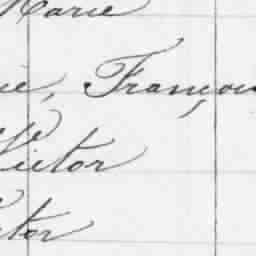 Marie
ie, François
Victor
ctor